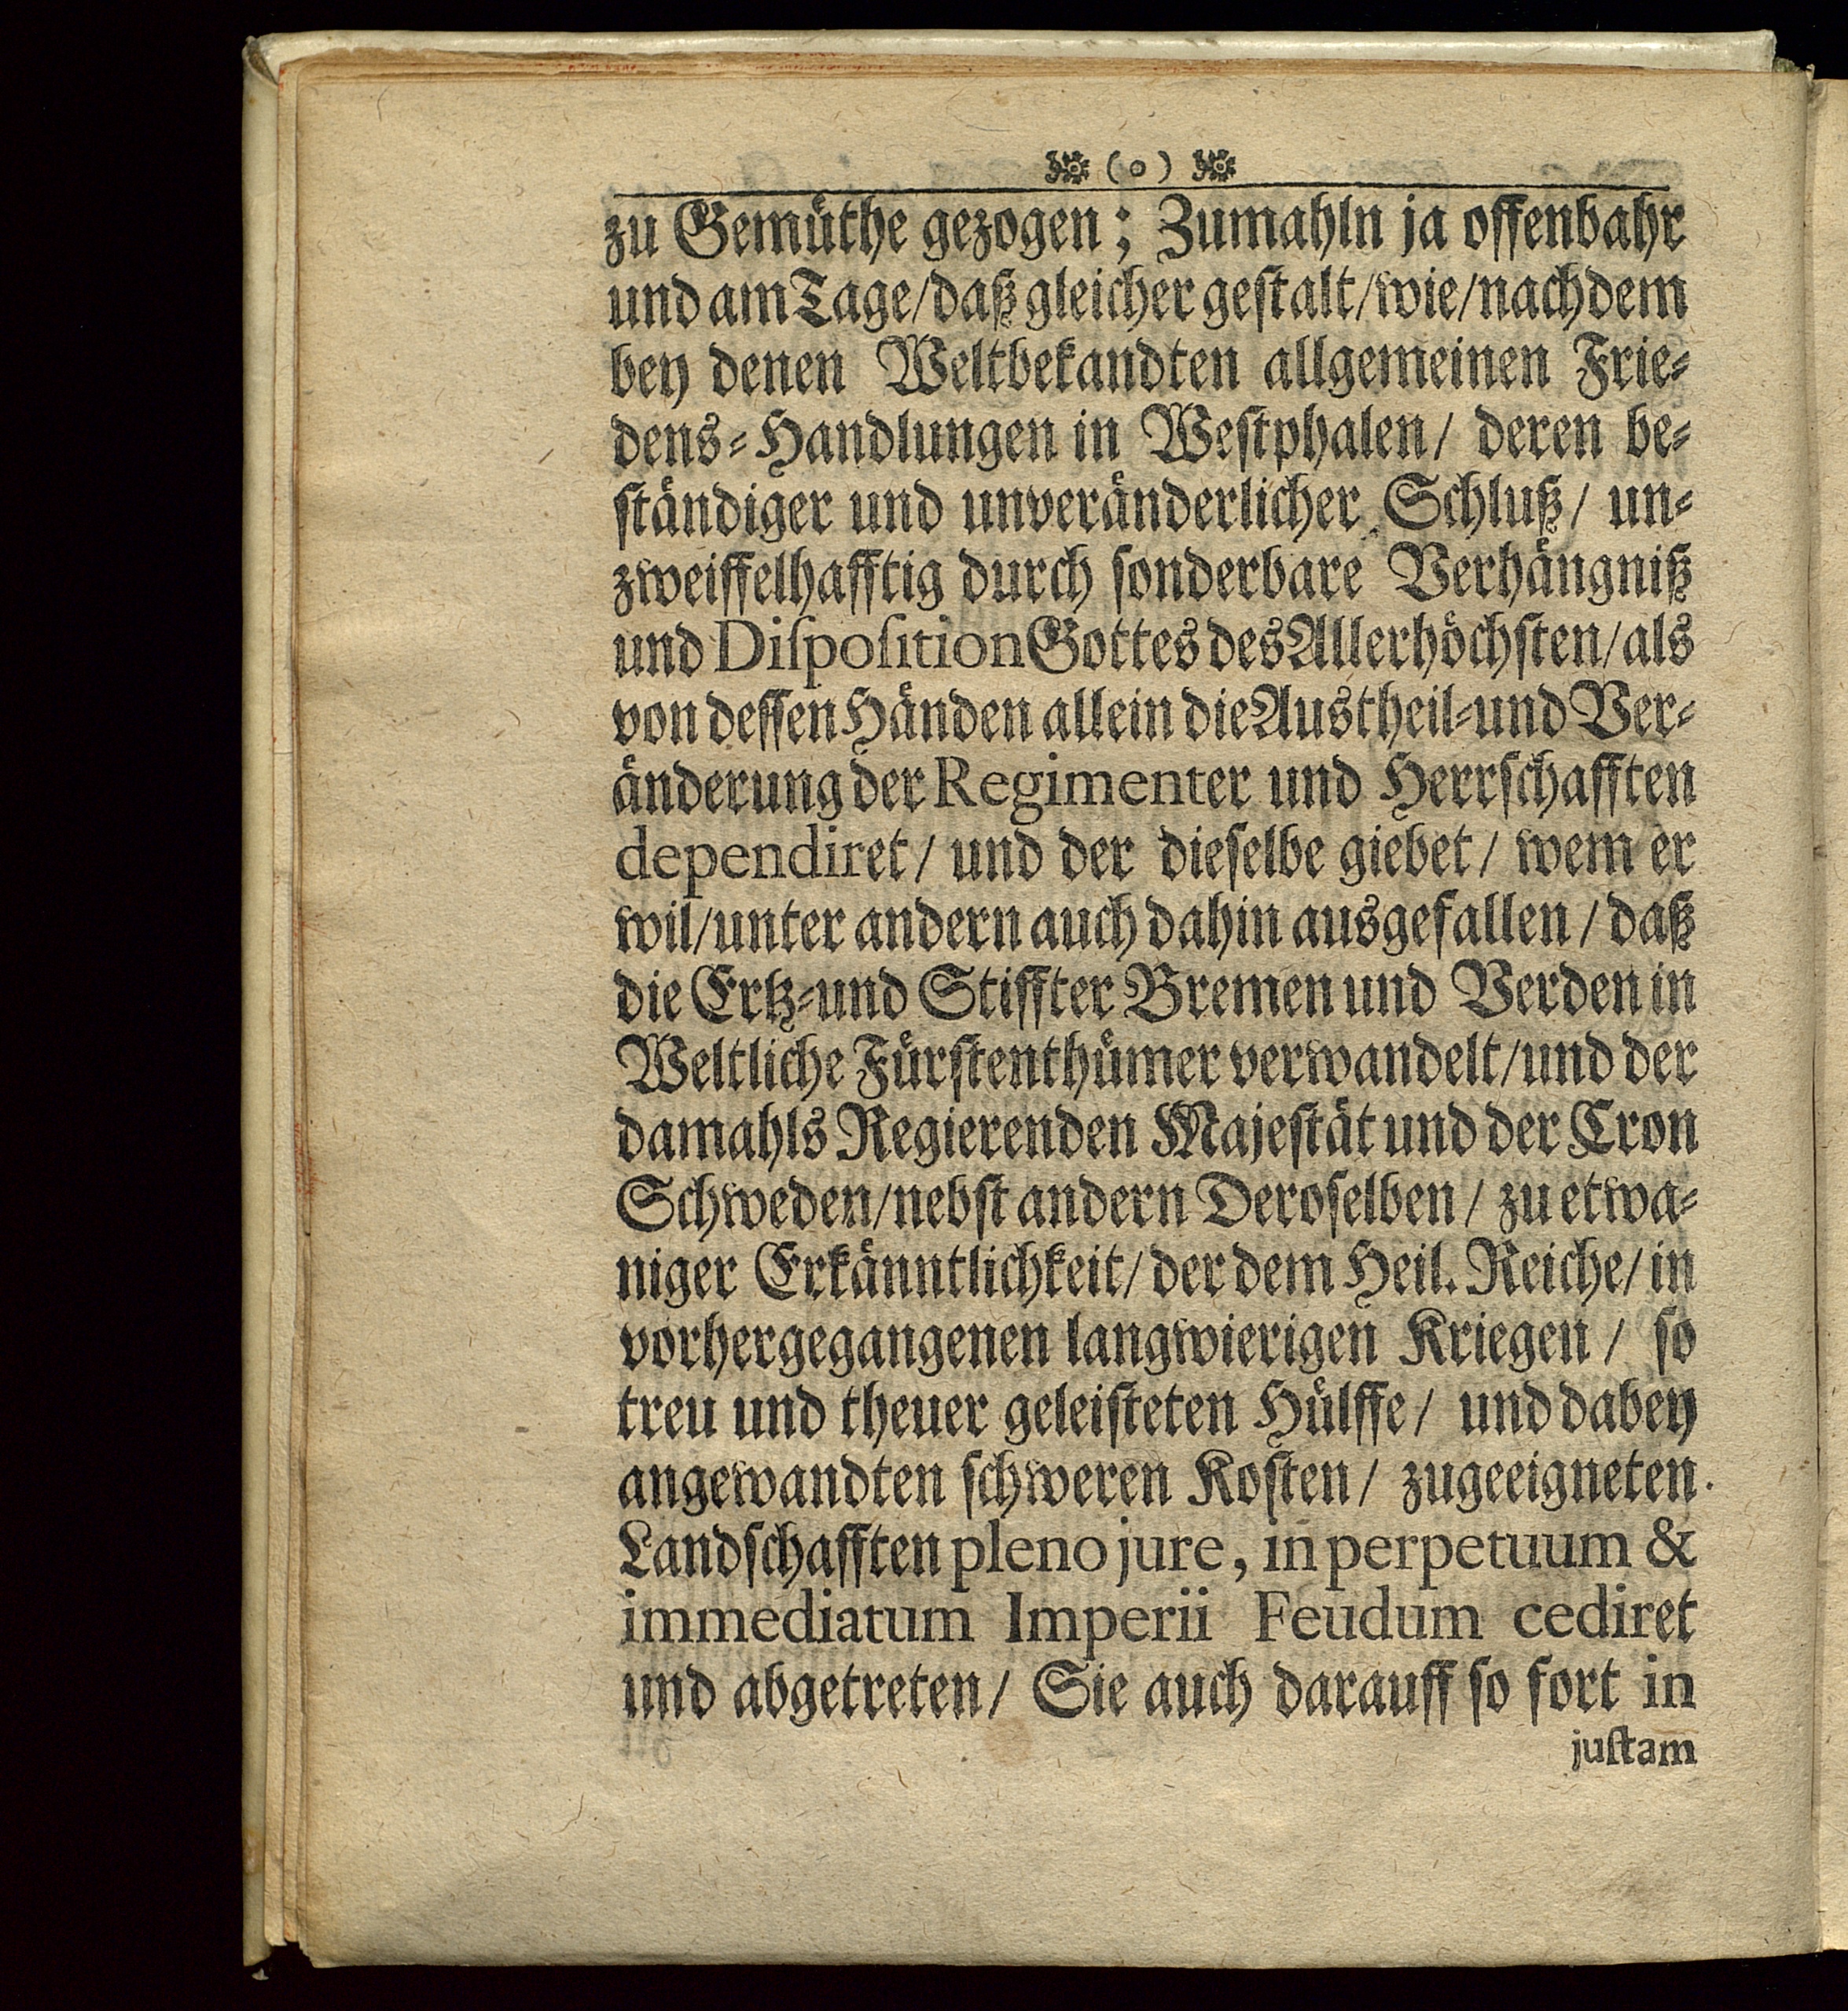 (o)
zu Gemüthe gezogen; Zumahln ja offenbahr
und am Tage/daß gleicher gestalt/wie/nachdem
bey denen Weltbekandten allgemeinen Frie-
dens-Handlungen in Westphalen/ deren be-
ständiger und unveränderlicher Schluß/ un-
zweiffelhafftig durch sonderbare Verhängniß
und Disposition Gottes des Allerhöchsten/als
von dessen Händen allein die Austheil-und Ver-
änderung der Regimenter und Herrschafften
dependiret/ und der dieselbe giebet/ wem er
wil/unter andern auch dahin ausgefallen/daß
die Ertz-und Stiffter Bremen und Verden in
Weltliche Fürstenthümer verwandelt/und der
damahls Regierenden Majestät und der Cron
Schweden/nebst andern Deroselben/ zu etwa-
niger Erkänntlichkeit/der dem Heil. Reiche/in
vorhergegangenen langwierigen Kriegen/ so
treu und theuer geleisteten Hülffe/ und dabey
angewandten schweren Kosten/ zugeeigneten
Landschafften pleno jure, in perpetuum &
immediatum Imperii Feudum cediret
und abgetreten/ Sie auch darauff so fort in
justam